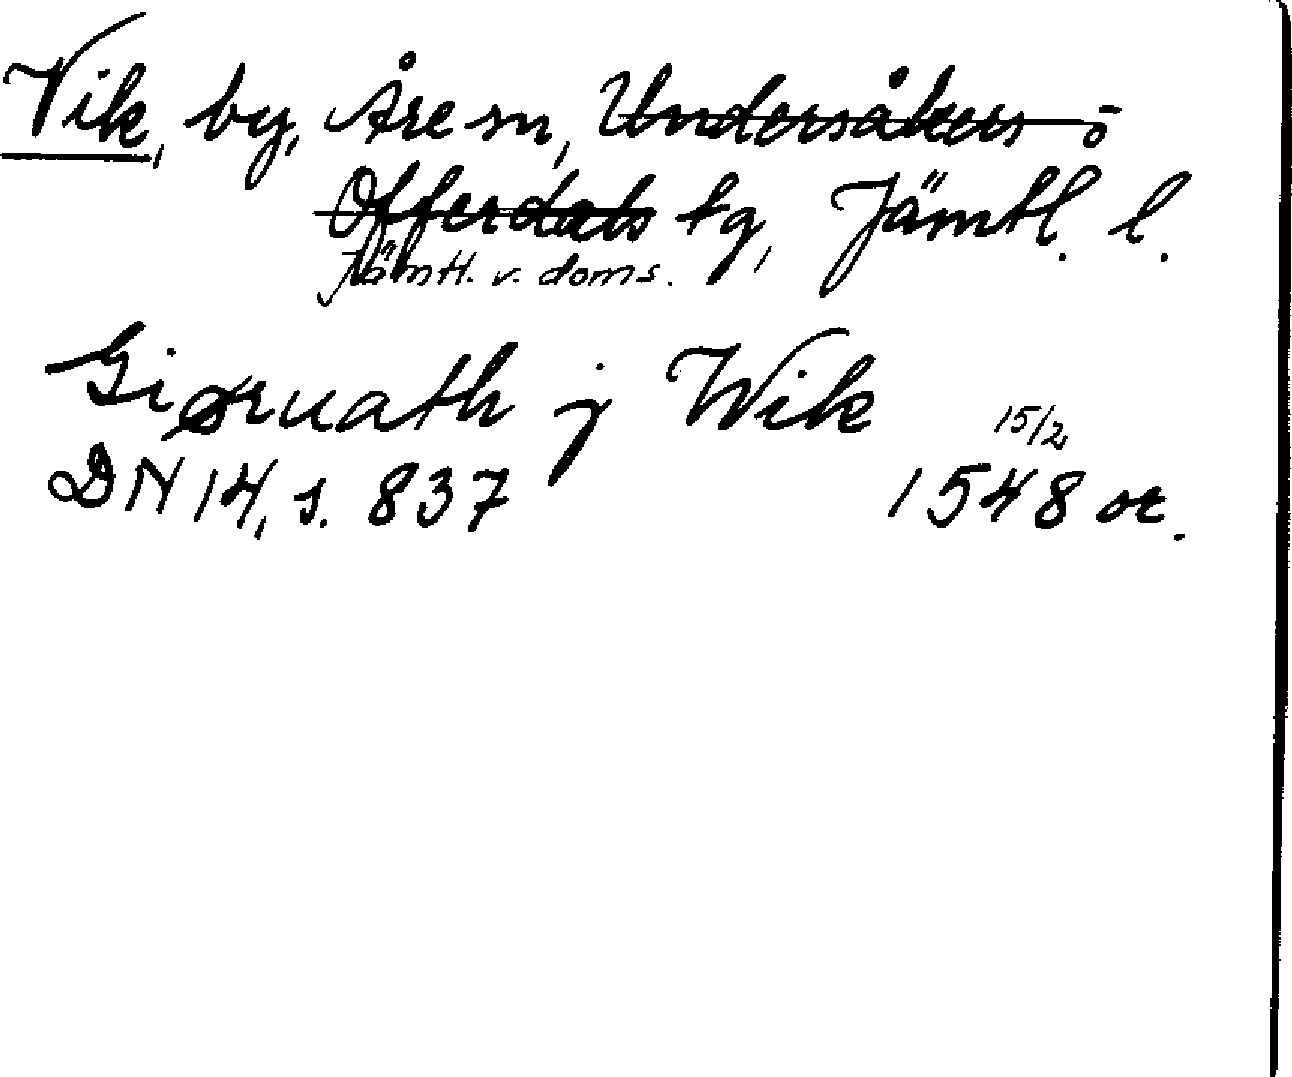 Vik, by, Åre sn, Undersåkers o
Offerdals tg, Jämtl. l.
Jämtl. v. doms.
Giøruath j Wik
15/2
DN 14, s. 837 1548 or.